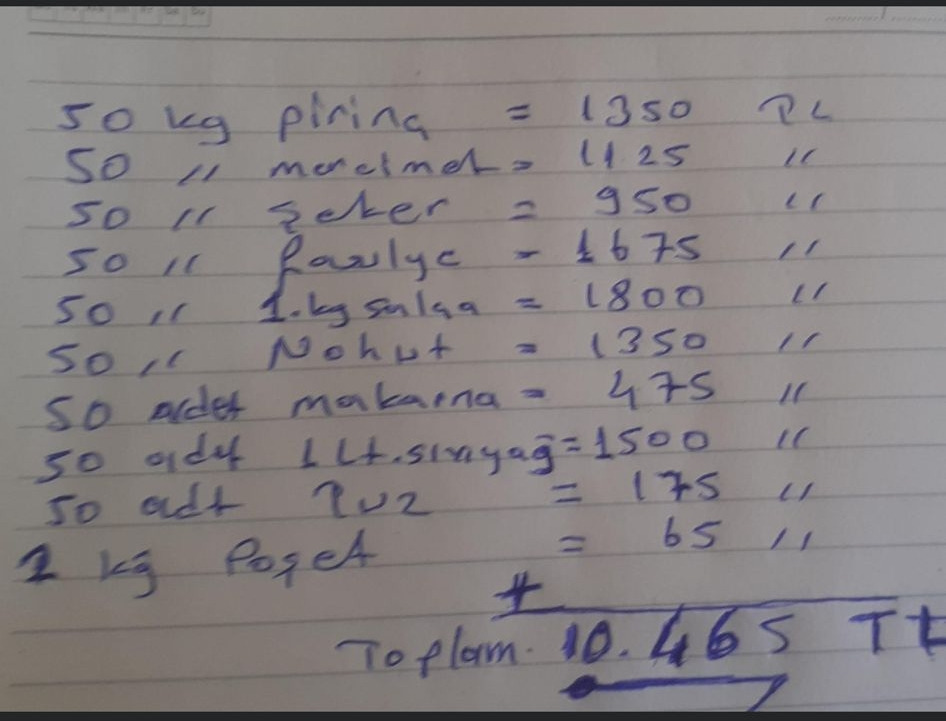 50 kg pirinç = 1350 TL
50 " mercimek = 1125 "
50 " şeker = 950 "
50 " fasulye = 1675 "
50 " 1.kg salça = 1800 "
50 " Nohut = 1350 "
50 adet makarna = 475 "
50 adet 1 Lt. sıvıyağ = 1500 "
50 adt Tuz = 175 "
1 kg Poşet = 65 "
+
Toplam. 10.465 TL